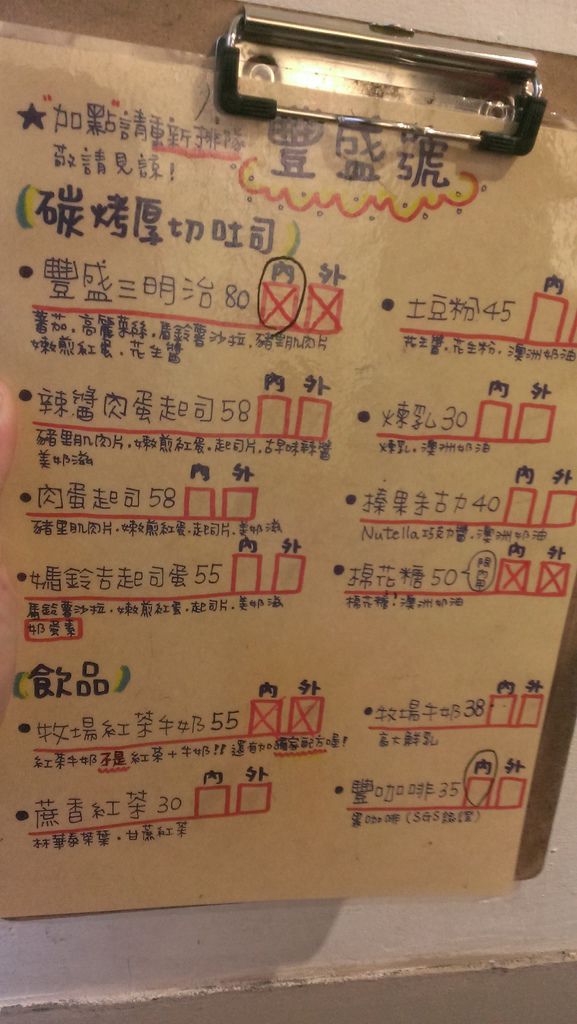 ★"加點"請重新排隊
敬請見諒!
豐盛號
(碳烤厚切吐司)
內 外
• 豐盛三明治 80
蕃茄.高麗菜絲.馬鈴薯沙拉.豬里肌肉片
嫩煎紅蛋.花生醬
內 外
• 辣醬肉蛋起司 58
豬里肌肉片.嫩煎紅蛋.起司片.古早味辣醬
美奶滋
內 外
• 肉蛋起司 58
豬里肌肉片.嫩煎紅蛋.起司片.美奶滋
內 外
• 馬鈴吉起司蛋 55
馬鈴薯沙拉.嫩煎紅蛋.起司片.美奶滋
奶蛋素
內
• 土豆粉 45
花生醬.花生粉.澳洲奶油
內 外
• 煉乳 30
煉乳.澳洲奶油
內 外
• 榛果朱古力 40
Nutella巧克力醬.澳洲奶油
內 外
• 棉花糖 50
棉花糖.澳洲奶油
(飲品)
內 外
• 牧場紅茶牛奶 55
紅茶牛奶不是紅茶+牛奶!! 還有加獨家配方喔!
內 外
• 蔗香紅茶 30
林華泰茶葉.甘蔗紅茶
內 外
• 牧場牛奶 38
高大鮮乳
內 外
• 豐咖啡 35
黑咖啡(SGS認證)